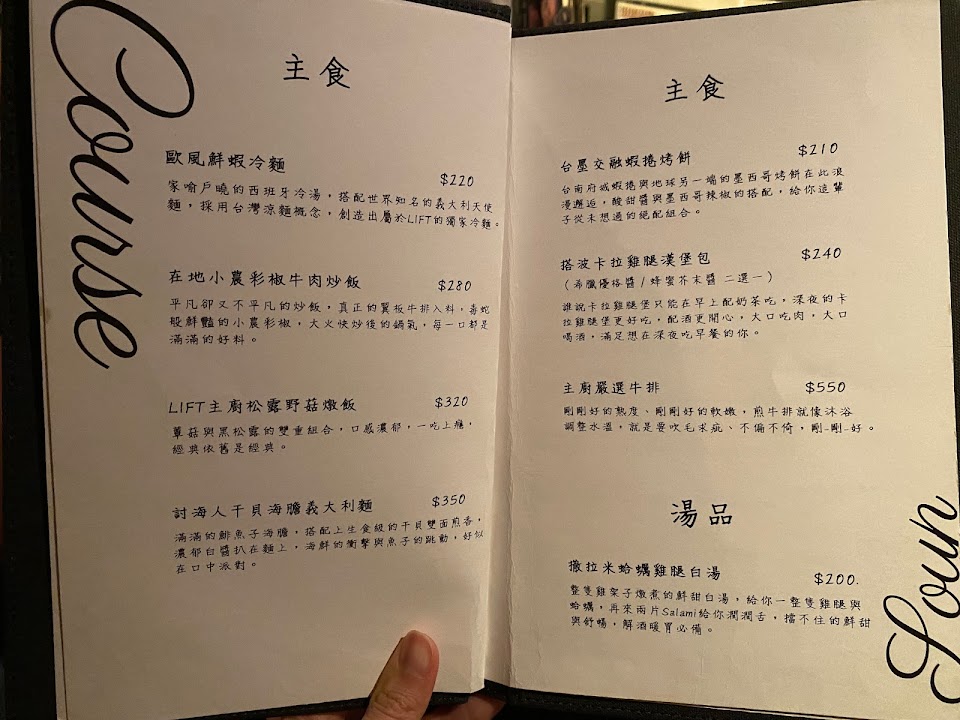 Course
主食
歐風鮮蝦冷麵
$220
家喻戶曉的西班牙冷湯，搭配世界知名的義大利天使
麵，採用台灣涼麵概念，創造出屬於LIFT的獨家冷麵。
在地小農彩椒牛肉炒飯
$280
平凡卻又不平凡的炒飯，真正的翼板牛排入料，毒蛇
般鮮豔的小農彩椒，大火快炒後的鍋氣，每一口都是
滿滿的好料。
LIFT主廚松露野菇燉飯
$320
蕈菇與黑松露的雙重組合，口感濃郁，一吃上癮，
經典依舊是經典。
討海人干貝海膽義大利麵
$350
滿滿的鯡魚子海膽，搭配上生食級的干貝雙面煎香，
濃郁白醬扒在麵上，海鮮的衝擊與魚子的跳動，好似
在口中派對。
主食
台墨交融蝦捲烤餅
$210
台南府城蝦捲與地球另一端的墨西哥烤餅在此浪
漫邂逅，酸甜醬與墨西哥辣椒的搭配，給你這輩
子從未想過的絕配組合。
搭波卡拉雞腿漢堡包
$240
（希臘優格醬/蜂蜜芥末醬 二選一）
誰說卡拉雞腿堡只能在早上配奶茶吃，深夜的卡
拉雞腿堡更好吃，配酒更開心，大口吃肉，大口
喝酒，滿足想在深夜吃早餐的你。
主廚嚴選牛排
$550
剛剛好的熟度、剛剛好的軟嫩，煎牛排就像沐浴
調整水溫，就是要吹毛求疵、不偏不倚，剛-剛-好。
湯品
撒拉米蛤蠣雞腿白湯
$200.
整隻雞架子燉煮的鮮甜白湯，給你一整隻雞腿與
蛤蠣，再來兩片Salami給你潤潤舌，擋不住的鮮甜
與舒暢，解酒暖胃必備。
Soup